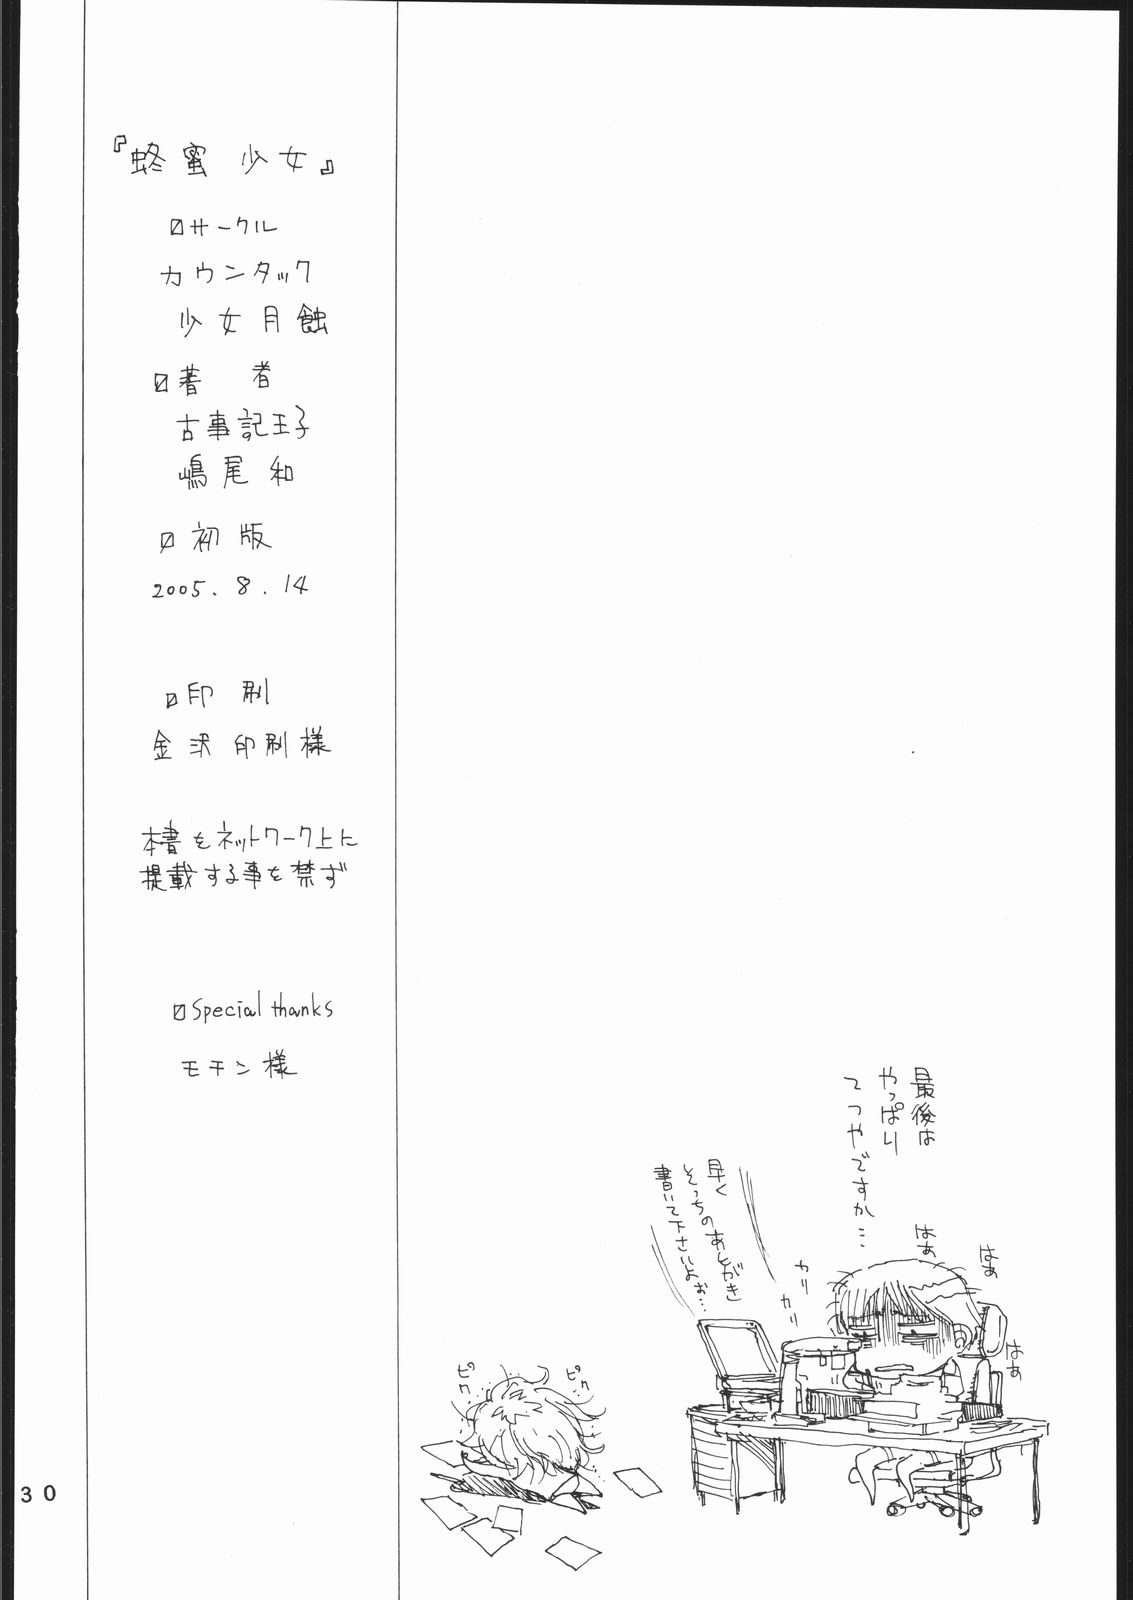 『蜂蜜少女』
サークル
カウンタック
少女月蝕
著者
古事記王子
嶋尾和
初版
2005.8.14
印刷
金沢印刷様
本書をネットワーク上に
掲載する事を禁ず
Special thanks
モチン様
最後は
やっぱり
てつやですか…
はぁ
はぁ
はぁ
カリ
カリ
早く
そっちのあとがき
書いて下さいよぉ…
ピク
ピク
30